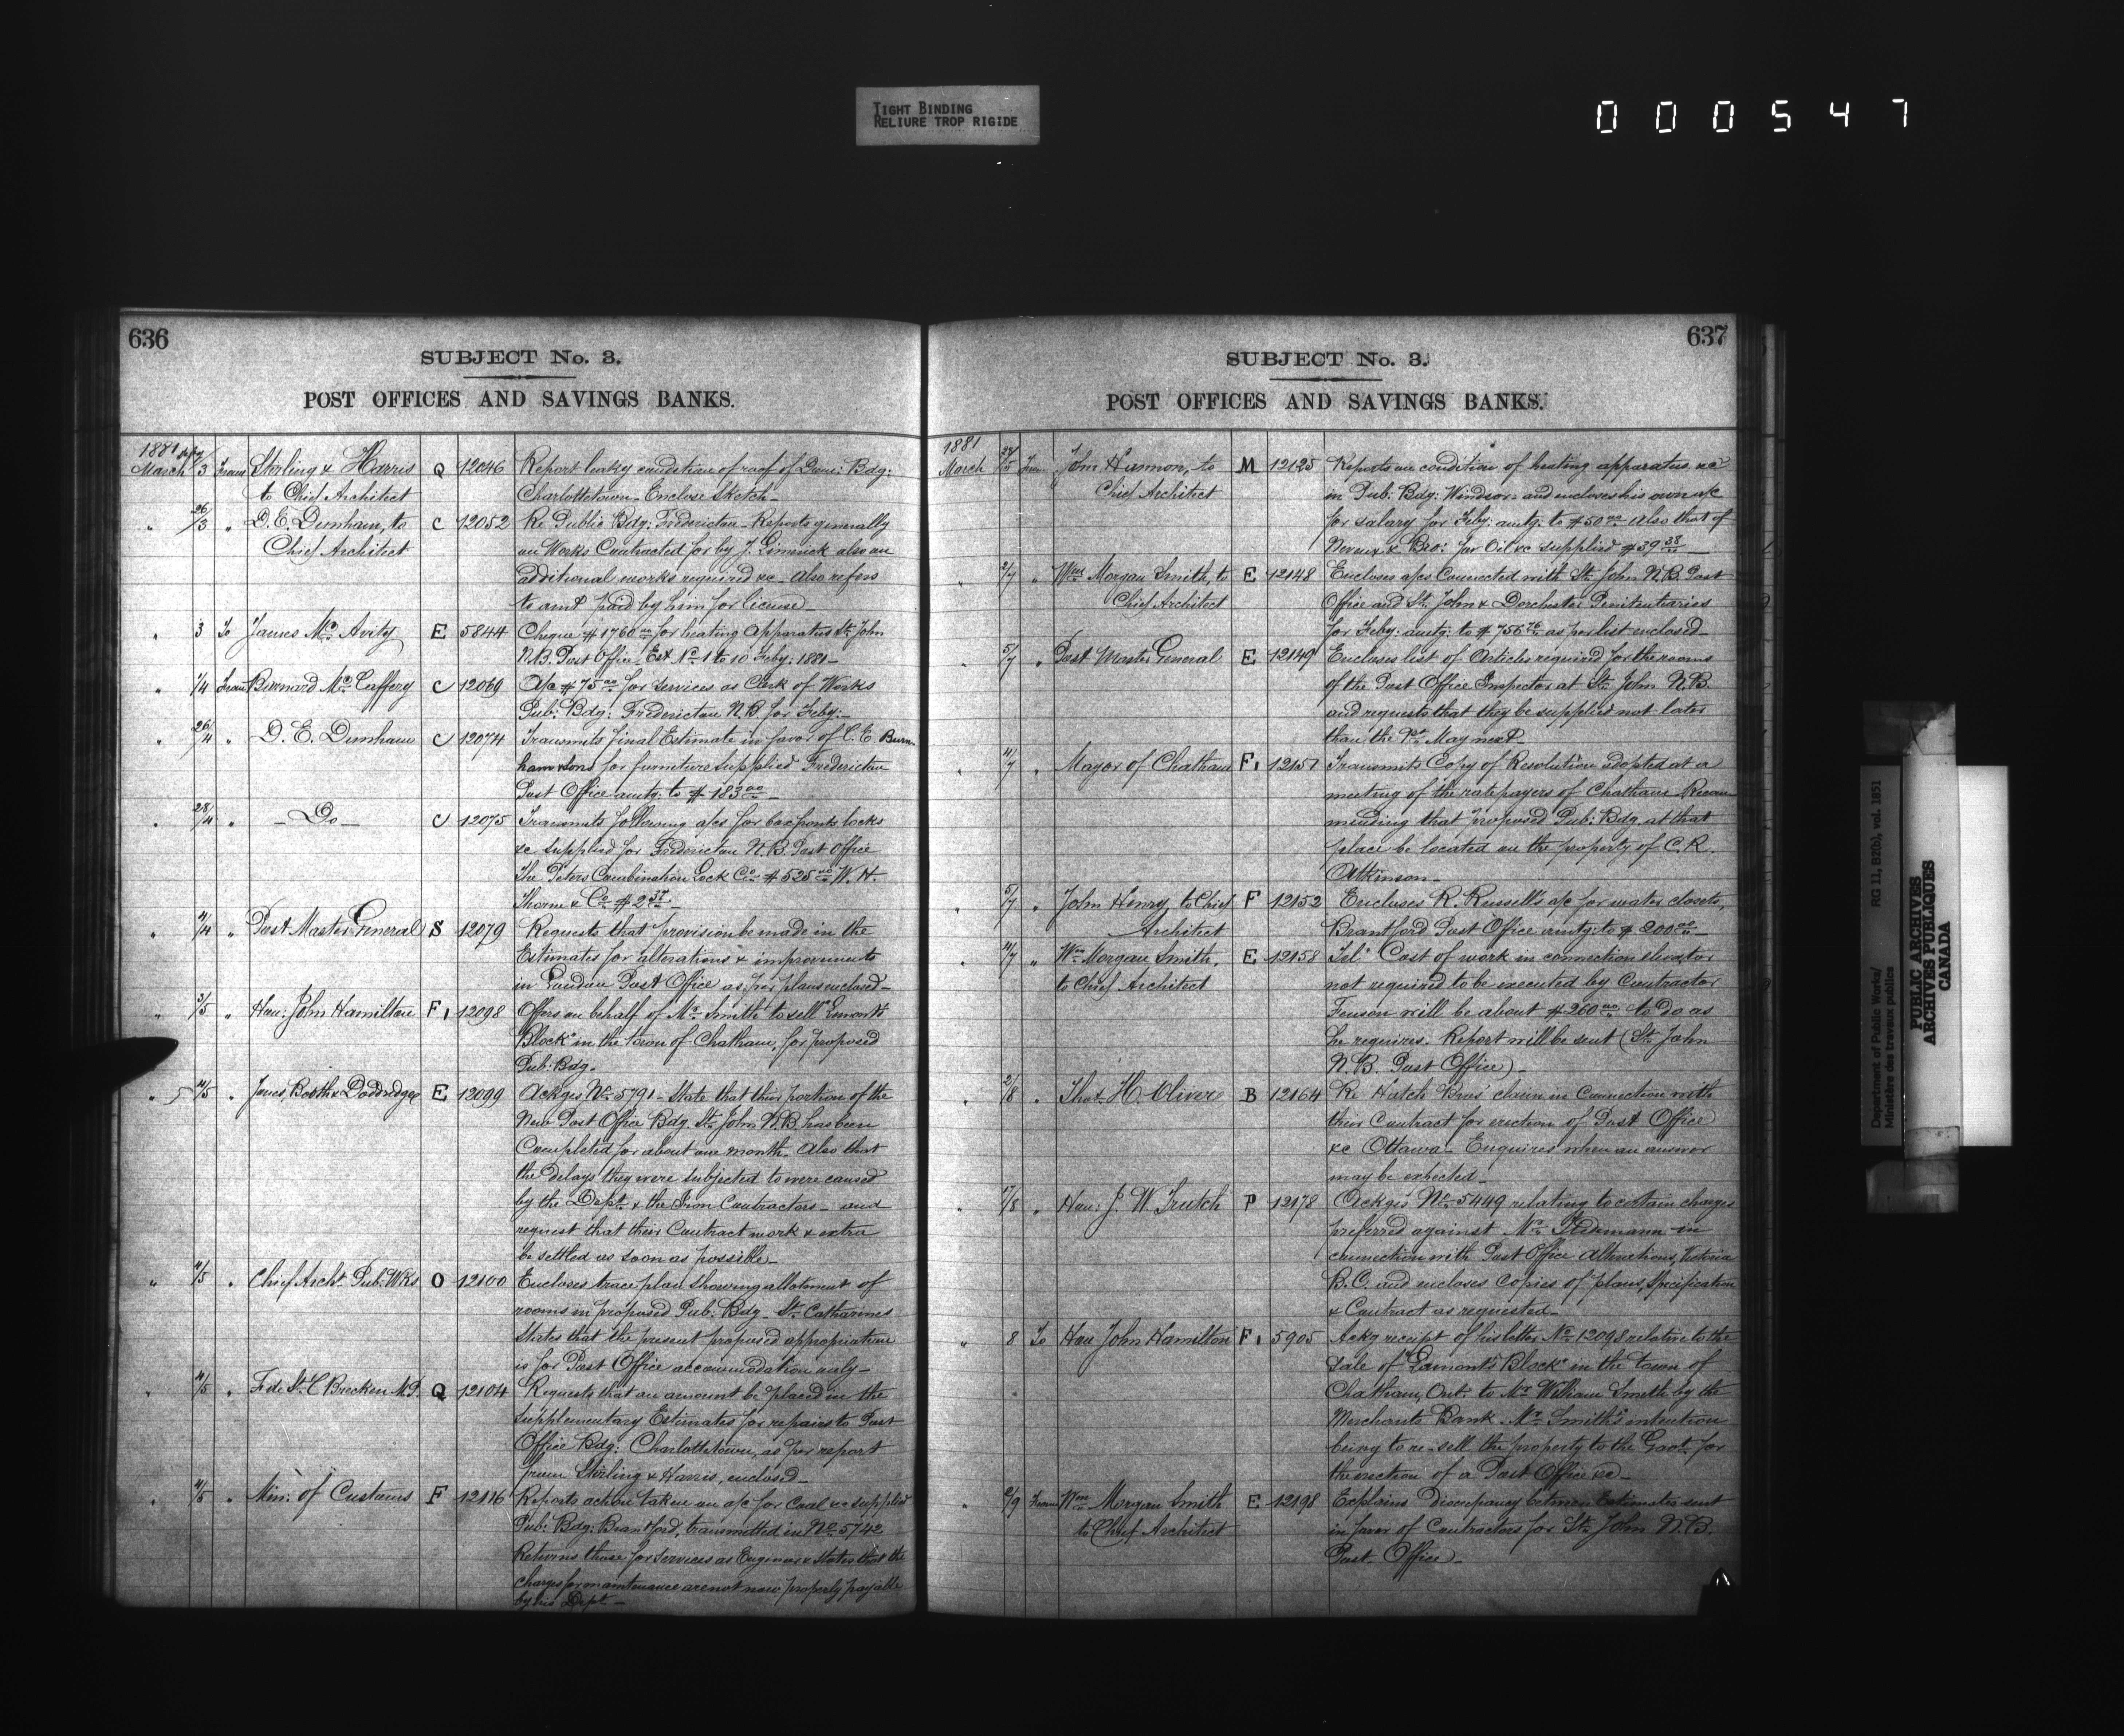 TIGHT BINDING
RELIURE TROP RIGIDE
000547
636
SUBJECT No. 3.
POST OFFICES AND SAVINGS BANKS.
1881
March 3 From Sterling & Harris Q 12046 Report leaky condition of roof of Bdg:
to Chief Architect Charlottetown - Enclose Sketch -
" 26/3 " D. E. Dunham, to C 12052 Re Public Bdg: Fredericton - Reports generally
Chief Architect on Works Contracted for by J. Limerick also on
additional works required &c - Also refers
to amt paid by him for license -
" 3 To James McAvity E 5844 Cheque $1760.00 for heating Apparatus St. John
N.B. Post Office, Est No 1 to 10 Feby: 1881 -
" 1/4 From Bernard McCaffery C 12069 A/c $75.00 for services as Clerk of Works
Pub: Bdg: Fredericton N.B for Feby: -
" 26/4 " D. E. Dunham C 12074 Transmits final Estimate in favor of C. E Burn-
ham & Sons for furniture supplied Fredericton
Post Office amtg: to $183.00 -
" 28/4 " - Do - C 12075 Transmits following a/cs for box fronts locks
&c supplied for Fredericton N.B. Post Office
The Peters Combination Lock Co $525.00 W. H.
Thorne & Co $2.37 -
" 4/4 " Post Master General S 12079 Requests that provision be made in the
Estimates for alterations & improvements
in London Post Office as per plans enclosed -
" 3/5 " Hon: John Hamilton F 1 12098 Offers on behalf of Mr Smith to sell "Lamont's
Block" in the town of Chatham, for proposed
Pub: Bdg.
" 4/5 " Jones, Booth & Doddridge E 12099 Ackges No 5791 - State that their portion of the
New Post Office Bdg. St. John N.B. has been
Completed for about one month. Also that
the delays they were subjected to were caused
by the Dept. & the Iron Contractors - and
request that their Contract work & extra
be settled as soon as possible -
" 4/5 " Chief Archt. Pub: Wks O 12100 Encloses trace plan showing allotment of
rooms in proposed Pub: Bdg - St. Catharines
States that the present proposed appropriation
is for Post Office accommodation only -
" 4/5 " F. de St. C Brecken M.P. Q 12104 Requests that an amount be placed in the
Supplementary Estimates for repairs to Post
Office Bdg: Charlottetown, as per report
from Sterling & Harris, enclosed -
" 4/5 " Min: of Customs F 12116 Reports action taken on a/c for Coal &c supplied
Pub: Bdg: Brantford, transmitted in No 5742
Returns those for Services as Engineer & States that the
charges for maintenance are not now properly payable
by his Dept -
637
SUBJECT No. 3.
POST OFFICES AND SAVINGS BANKS.
1881
March From John Harmon, to M 12125 Reports on condition of heating apparatus &c
Chief Architect in Pub: Bdg: Windsor: and encloses his own a/c
for salary for Feby: amtg: to $50.00 - Also that of
& Bro: for Oil &c supplied $39.38 -
" 2/7 " Wm Morgan Smith, to E 12148 Encloses a/cs Connected with St. John N.B. Post
Chief Architect Office and St. John & Dorchester Penitentiaries
for Feby: amtg: to $756.76 as per list enclosed -
" 5/7 " Post Master General E 12149 Encloses list of Articles required for the rooms
of the Post Office Inspector at St. John N.B.
and requests that they be supplied not later
than the 1st May next -
" 4/7 " Mayor of Chatham F 1 12151 Transmits Copy of Resolution adopted at a
meeting of the ratepayers of Chatham Recom-
mending that proposed Pub: Bdg. at that
place be located on the property of C. R.
Atkinson -
" 5/7 " John Henry, to Chief F 12152 Encloses R. Russell's a/c for water closets,
Architect Brantford Post Office amtg: to $200.00 -
" 4/7 " Wm Morgan Smith, E 12158 Tel: Cost of work in connection elevator
to Chief Architect not required to be executed by Contractor
Fenson will be about $260.00 to do as
he requires. Report will be sent (St. John
N.B. Post Office) -
" 2/8 " Thos. H. Olivere B 12164 Re Hatch Bros' claim in Connection with
their Contract for erection of Post Office
&c Ottawa - Enquires when an answer
may be expected -
" 17/8 " Hon: J. W. Trutch P 12178 Ackges No 5449 relating to certain charges
preferred against Mr in
connection with Post Office Alterations, Victoria
B.C. and encloses Copies of plans, Specification
& Contract as requested -
" 8 To Hon John Hamilton F 1 5905 Ackg receipt of his letter No 12098 relative to the
Sale of "Lamont's Block" in the town of
Chatham, Ont. to Mr William Smith by the
Merchants Bank Mr Smith's intention
being to re-sell the property to the Govt. for
the erection of a Post Office &c -
" 2/9 From Wm Morgan Smith E 12198 Explains Discrepancy between Estimates sent
to Chief Architect in favor of Contractors for St. John N.B.
Post Office -
Department of Public Works/ RG 11, B2(b), vol. 1851
Ministère des travaux publics
PUBLIC ARCHIVES
ARCHIVES PUBLIQUES
CANADA